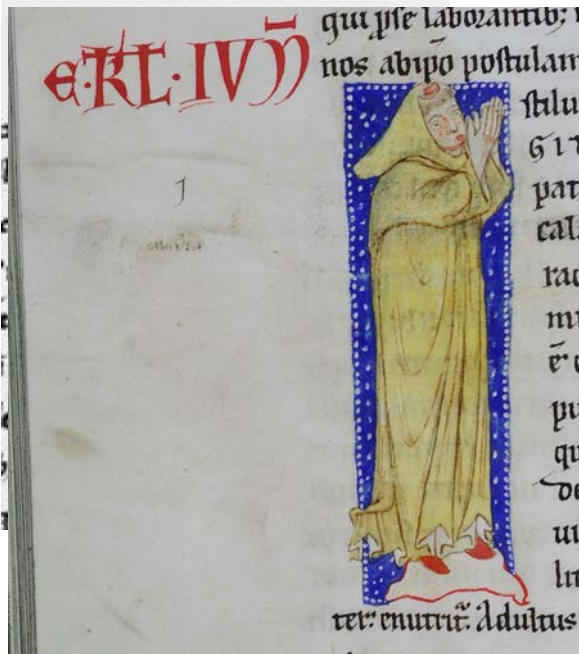 e·KL·IVN̄
qui ip̄se laborantib;
nos abip̄o postulam
stilu
GIT
pat
cal
rac
mi
ē
pu
qu
De
ui
lit
ter: enutrit: Adultus